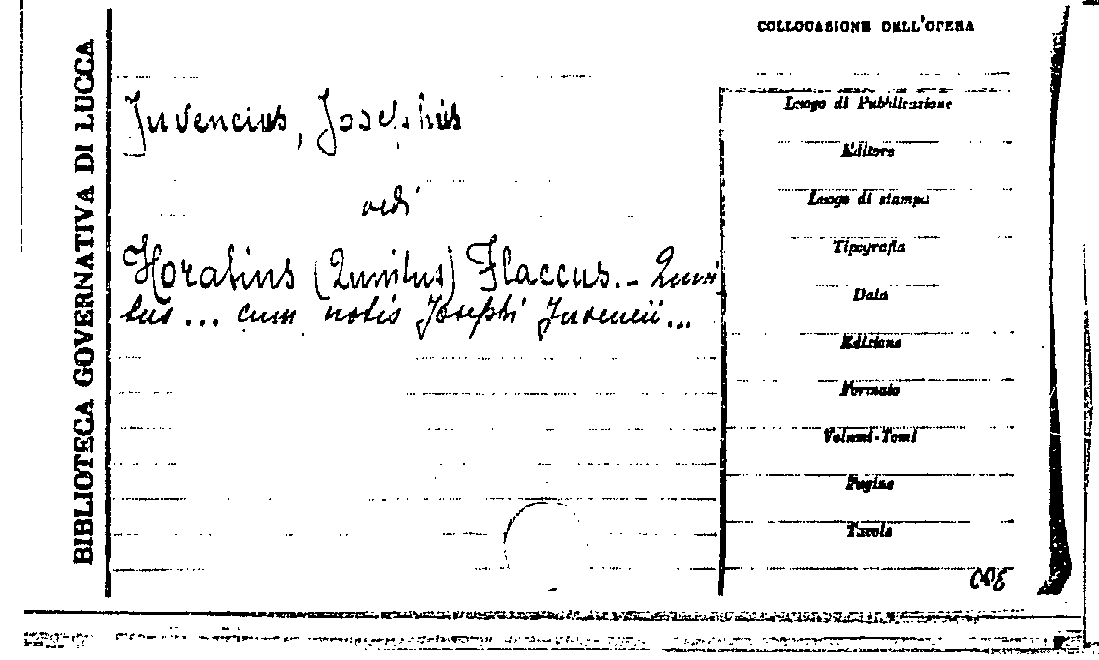 BIBLIOTECA GOVERNATIVA DI LUCCA
COLLOCASIONE DELL'OPERA
Juvencius, Josephus
vedi
Horatius (Quintus) Flaccus. - Quin
tus ... cum notis Josephi Juvencii ...
Luogo di Pubblicazione
Editore
Luogo di stampa
Tipografia
Data
Edizione
Formato
Volumi-Tomi
Pagine
Tavole